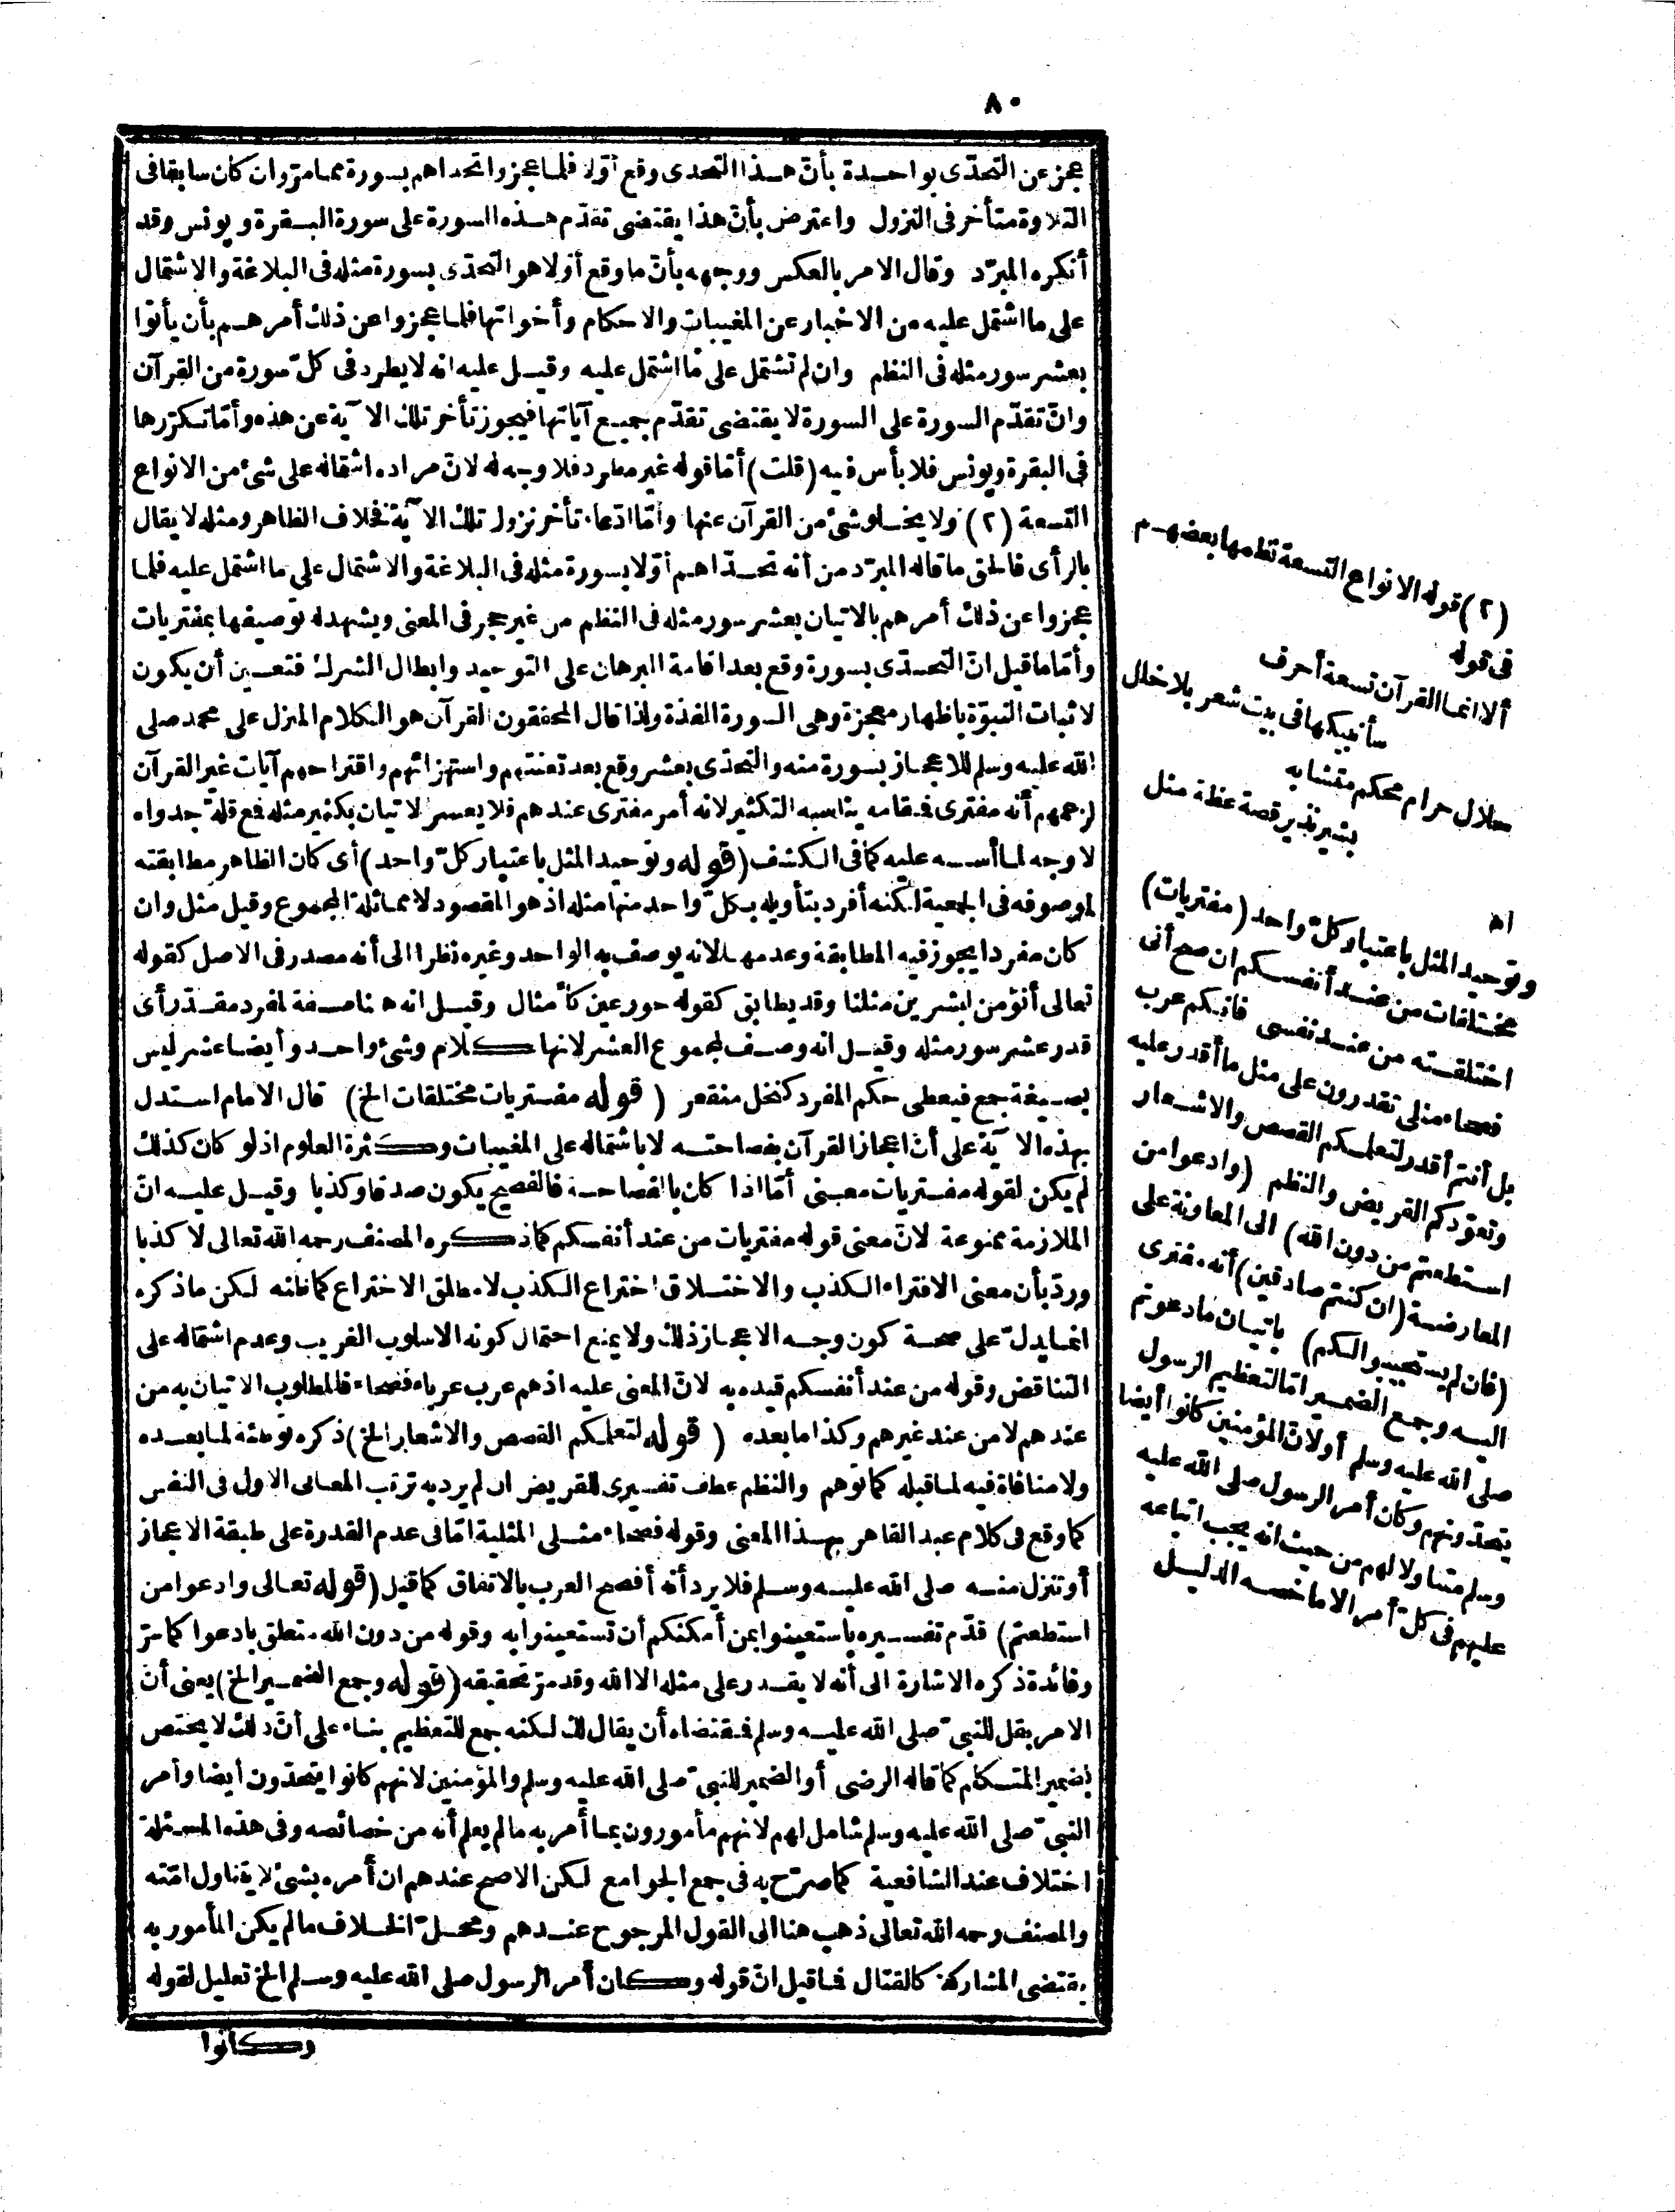 ٨٠
عجز عن التحدّى بواحدة بأنّ هذا التحدى وقع أوّلا فلما عجزوا تحداهم بسورة مما مرّ وان كان سابقا فى
التلاوة متأخر فى النزول واعترض بأنّ هذا يقتضى تقدّم هذه السورة على سورة البقرة ويونس وقد
أنكره المبرّد وقال الامر بالعكس ووجهه بأنّ ما وقع أوّلا هو التحدّى بسورة مثله فى البلاغة والاشتمال
على ما اشتمل عليه من الاخبار عن المغيبات والاحكام وأخواتها فلما عجزوا عن ذلك أمرهم بأن يأتوا
بعشر سور مثله فى النظم وان لم تشتمل على ما اشتمل عليه وقيل عليه انه لا يطرد فى كلّ سورة من القرآن
وانّ تقدّم السورة على السورة لا يقتضى تقدّم جميع آياتها فيجوز تأخر تلك الآية عن هذه وأمّا تكرّرها
فى البقرة ويونس فلا بأس فيه (قلت) أمّا قوله غير مطرد فلا وجه له لانّ مراده اشتماله على شئ من الانواع
التسعة (٢) ولا يخلو شئ من القرآن عنها وأمّا ادّعاء تأخر نزول تلك الآية فخلاف الظاهر ومثله لا يقال
بالرأى فالحق ما قاله المبرّد من أنه تحدّاهم أوّلا بسورة مثله فى البلاغة والاشتمال على ما اشتمل عليه فلما
عجزوا عن ذلك أمرهم بالاتيان بعشر سور مثله فى النظم من غير حجر فى المعنى ويشهد له توصيفها بمفتريات
وأمّا ما قيل انّ التحدّى بسورة وقع بعد اقامة البرهان على التوحيد وابطال الشرك فتعين أن يكون
لاثبات النبوّة باظهار معجزة وهى السورة الفذة ولذا قال المحققون القرآن هو الكلام المنزل على محمد صلى
الله عليه وسلم للاعجاز بسورة منه والتحدّى بعشر وقع بعد تعنتهم واستهزائهم واقتراحهم آيات غير القرآن
لزعمهم أنه مفترى فمقامه يناسبه التكثير لانه أمر مفترى عندهم فلا يعسر الاتيان بكثير مثله فمع قلة جدواه
لا وجه لما أسسه عليه كما فى الكشف (قوله وتوحيد المثل باعتبار كلّ واحد) أى كان الظاهر مطابقته
لموصوفه فى الجمعية لكنه أفرد بتأويله بكلّ واحد منها مثله اذ هو المقصود لا مماثلة المجموع وقيل مثل وان
كان مفردا يجوز فيه المطابقة وعدمها لانه يوصف به الواحد وغيره نظرا الى أنه مصدر فى الاصل كقوله
تعالى أنؤمن لبشرين مثلنا وقد يطابق كقوله حور عين كأمثال وقيل انه هنا صفة لمفرد مقدّر أى
قدر عشر سور مثله وقيل انه وصف لمجموع العشر لانها كلام وشئ واحد وأيضا عشر ليس
بصيغة جمع فيعطى حكم المفرد كنخل منقعر (قوله مفتريات مختلقات الخ) قال الامام استدل
بهذه الآية على أنّ اعجاز القرآن بفصاحته لا باشتماله على المغيبات وكثرة العلوم اذ لو كان كذلك
لم يكن لقوله مفتريات معنى أمّا اذا كان بالفصاحة فالفصيح يكون صدقا وكذبا وقيل عليه انّ
الملازمة ممنوعة لانّ معنى قوله مفتريات من عند أنفسكم كما ذكره المصنف رحمه الله تعالى لا كذبا
وردّ بأن معنى الافتراء الكذب والاختلاق اختراع الكذب لا مطلق الاختراع كما ظنه لكن ما ذكره
انما يدلّ على صحة كون وجه الاعجاز ذلك ولا يمنع احتمال كونه الاسلوب الغريب وعدم اشتماله على
التناقض وقوله من عند أنفسكم قيده به لانّ المعنى عليه اذ هم عرب عرباء فصحاء فالمطلوب الاتيان به من
عندهم لا من عند غيرهم وكذا ما بعده (قوله لتعلمكم القصص والاشعار الخ) ذكره توطئة لما بعده
ولا منافاة فيه لما قبله كما توهم والنظم عطف تفسيرى للقريض ان لم يرد به ترتب المعانى الاول فى النفس
كما وقع فى كلام عبد القاهر بهذا المعنى وقوله فصحاء مثلى المثلية امّا فى عدم القدرة على طبقة الاعجاز
أو تنزل منه صلى الله عليه وسلم فلا يرد أنه أفصح العرب بالاتفاق كما قيل (قوله تعالى وادعوا من
استطعتم) قدّم تفسيره باستعينوا بمن أمكنكم أن تستعينوا به وقوله من دون الله متعلق بادعوا كما مرّ
وفائدة ذكره الاشارة الى أنه لا يقدر على مثله الا الله وقد مرّ تحقيقه (قوله وجمع الضمير الخ) يعنى أنّ
الامر بقل للنبىّ صلى الله عليه وسلم فمقتضاه أن يقال لك لكنه جمع للتعظيم بناء على أنّ ذلك لا يختص
بضمير المتكلم كما قاله الرضى أو الضمير للنبىّ صلى الله عليه وسلم والمؤمنين لانهم كانوا يتحدّون أيضا وأمر
النبىّ صلى الله عليه وسلم شامل لهم لانهم مأمورون بما أمر به ما لم يعلم أنه من خصائصه وفى هذه المسئلة
اختلاف عند الشافعية كما صرّح به فى جمع الجوامع لكن الاصح عندهم ان أمره بشئ لا يتناول امّته
والمصنف رحمه الله تعالى ذهب هنا الى القول المرجوح عندهم ومحلّ الخلاف ما لم يكن المأمور به
يقتضى المشاركة كالقتال فما قيل انّ قوله وكان أمر الرسول صلى الله عليه وسلم الخ تعليل لقوله
وكانوا
(٢) قوله الانواع التسعة نظمها بعضهم
فى قوله
ألا انما القرآن تسعة أحرف
سأنبيكها فى بيت شعر بلا خلل
حلال حرام محكم متشابه
بشير نذير قصة عظة مثل
اه
وتوحيد المثل باعتبار كلّ واحد (مفتريات)
مختلقات من عند أنفسكم ان صح أنى
اختلقته من عند نفسى فانكم عرب
فصحاء مثلى تقدرون على مثل ما أقدر عليه
بل أنتم أقدر لتعلمكم القصص والاشعار
وتعوّدكم القريض والنظم (وادعوا من
استطعتم من دون الله) الى المعاونة على
المعارضة (ان كنتم صادقين) أنه مفترى
(فان لم يستجيبوا لكم) باتيان ما دعوتم
اليه وجمع الضمير امّا لتعظيم الرسول
صلى الله عليه وسلم أو لانّ المؤمنين كانوا أيضا
يتحدّونهم وكان أمر الرسول صلى الله عليه
وسلم متناولا لهم من حيث انه يجب اتباعه
عليهم فى كلّ أمر الا ما خصه الدليل